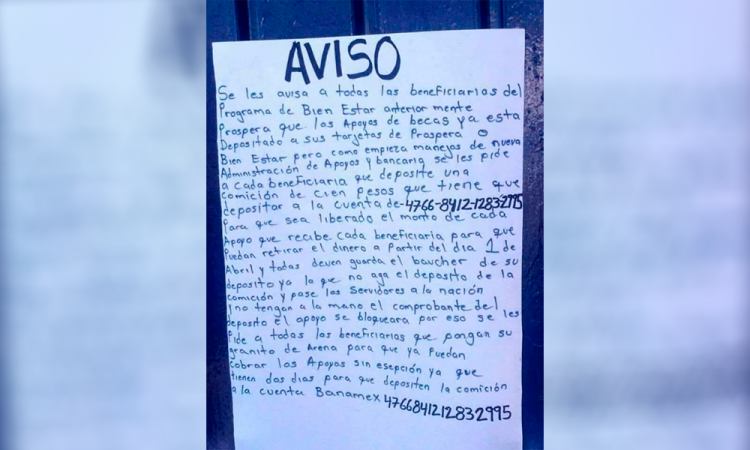 AVISO
Se les avisa a todas las beneficiarias del
Programa de Bien Estar anterior mente
Prospera que los Apoyos de becas ya esta
Depositado a sus tarjetas de Prospera o
Bien Estar pero como empieza manejos de nueva
Administración de Apoyos y bancaria se les pide
a cada beneficiaria que deposite una
comición de cien pesos que tiene que
depositor a la cuenta de-4766-8412-12832995
Para que sea liberado el monto de cada
Apoyo que recibe cada beneficiaria para que
Puedan retirar el dinero a Partir del dia 1 de
Abril y todas deven guarda el baucher de su
deposito ya la que no aga el deposito de la
comición y pase los Servidores a la nación
y no tengan a la mano el comprobante del
deposito El apoyo se bloqueara por eso se les
Pide a todas las beneficiarias que pongan su
granito de Arena para que ya Puedan
cobrar los Apoyos sin esepción ya que
tienen dos dias para que depositen la comición
a la cuenta Banamex 4766841212832995